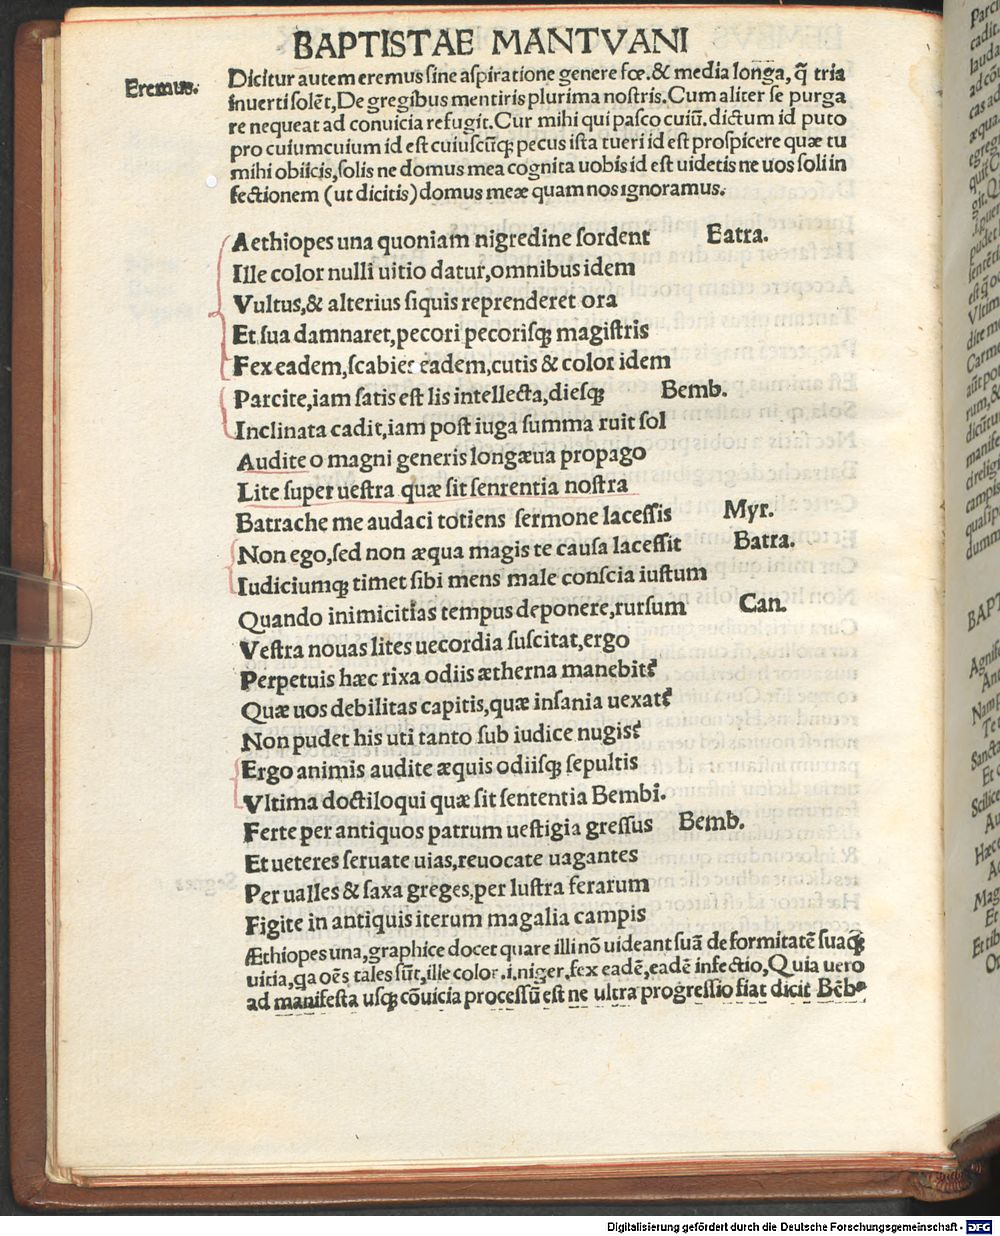 BAPTISTAE MANTVANI
Eremus.
Dicitur autem eremus sine aspiratione genere fœ. & media longa, q̃ tria
inuerti solẽt, De gregibus mentiris plurima nostris. Cum aliter se purga
re nequeat ad conuicia refugit. Cur mihi qui pasco cuiũ. dictum id puto
pro cuiumcuium id est cuiuscũqꝫ pecus ista tueri id est prospicere quæ tu
mihi obiicis, solis ne domus mea cognita uobis id est uidetis ne uos soli in
fectionem (ut dicitis) domus meæ quam nos ignoramus.
Aethiopes una quoniam nigredine sordent Eatra.
Ille color nulli uitio datur, omnibus idem
Vultus, & alterius siquis reprenderet ora
Et sua damnaret, pecori pecorisqꝫ magistris
Fex eadem, scabies eadem, cutis & color idem
Parcite, iam satis est lis intellecta, diesqꝫ Bemb.
Inclinata cadit, iam post iuga summa ruit sol
Audite o magni generis longæua propago
Lite super uestra quæ sit senrentia nostra
Batrache me audaci totiens sermone lacessis Myr.
Non ego, sed non æqua magis te causa lacessit Batra.
Iudiciumqꝫ timet sibi mens male conscia iustum
Quando inimicitias tempus deponere, rursum Can.
Vestra nouas lites uecordia suscitat, ergo
Perpetuis hæc rixa odiis ætherna manebit?
Quæ uos debilitas capitis, quæ insania uexat?
Non pudet his uti tanto sub iudice nugis?
Ergo animis audite æquis odiisqꝫ sepultis
Vltima doctiloqui quæ sit sententia Bembi.
Ferte per antiquos patrum uestigia gressus Bemb.
Et ueteres seruate uias, reuocate uagantes
Per ualles & saxa greges, per lustra ferarum
Figite in antiquis iterum magalia campis
Æthiopes una, graphice docet quare illi nõ uideant suã deformitatẽ suaqꝫ
uitia, qa oẽs tales sũt, ille color .i. niger, fex eadẽ, eadẽ infectio, Quia uero
ad manifesta usqꝫ cõuicia processũ est ne ultra progressio fiat dicit Bẽb
Digitalisierung gefördert durch die Deutsche Forschungsgemeinschaft - DFG